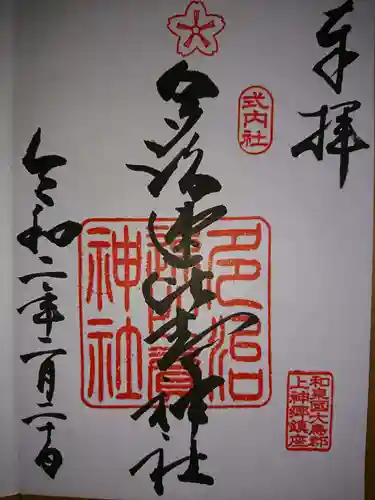 奉拝
式内社
和泉国大鳥郡
上神郷鎮座
多治速比売神社
多治
速比賣
神社
令和二年二月二十日